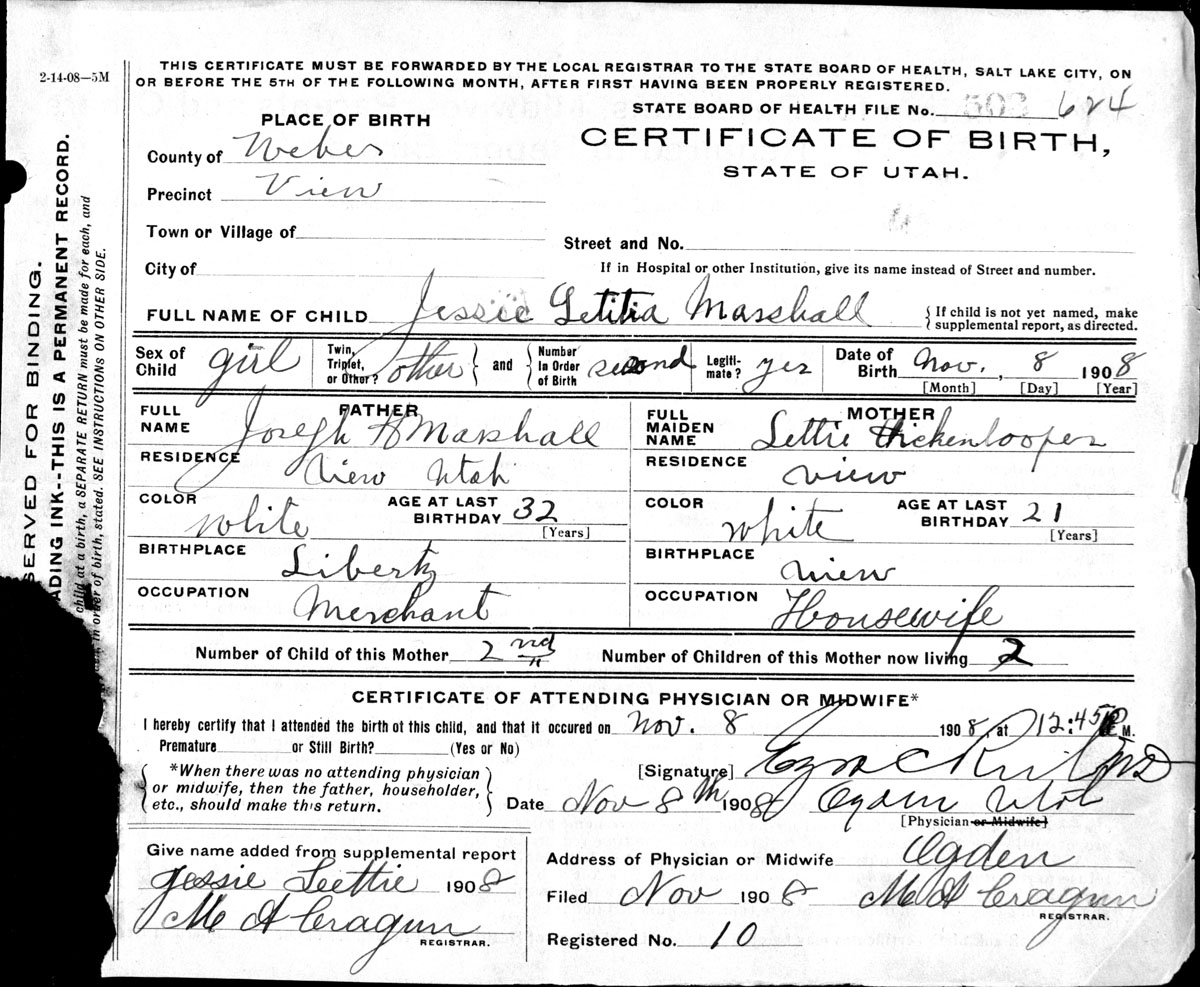 2-14-08—5M
THIS CERTIFICATE MUST BE FORWARDED BY THE LOCAL REGISTRAR TO THE STATE BOARD OF HEALTH, SALT LAKE CITY, ON
OR BEFORE THE 5TH OF THE FOLLOWING MONTH, AFTER FIRST HAVING BEEN PROPERLY REGISTERED.
STATE BOARD OF HEALTH FILE No. 503 624
PLACE OF BIRTH
CERTIFICATE OF BIRTH,
STATE OF UTAH.
County of Weber
Precinct View
Town or Village of
Street and No.
City of
If in Hospital or other Institution, give its name instead of Street and number.
FULL NAME OF CHILD Jessie Letitia Marshall
{ If child is not yet named, make
supplemental report, as directed.
Sex of Child girl
Twin, Triplet, or Other? other } and { Number In Order of Birth second
Legiti-mate? yes
Date of Birth Nov. , 8 1908
[Month] [Day] [Year]
FATHER
FULL NAME Joseph A Marshall
RESIDENCE View Utah
COLOR White
AGE AT LAST BIRTHDAY 32
[Years]
BIRTHPLACE Liberty
OCCUPATION Merchant
MOTHER
FULL MAIDEN NAME Lettie Hickenlooper
RESIDENCE View
COLOR White
AGE AT LAST BIRTHDAY 21
[Years]
BIRTHPLACE View
OCCUPATION Housewife
Number of Child of this Mother 2nd
Number of Children of this Mother now living 2
CERTIFICATE OF ATTENDING PHYSICIAN OR MIDWIFE*
I hereby certify that I attended the birth ot this child, and that it occured on Nov. 8 1908, at 12:45 P M.
Premature or Still Birth? (Yes or No)
{ *When there was no attending physician
or midwife, then the father, householder,
etc., should make this return. }
[Signature]
Date Nov 8th 1908 Utah
[Physician or Midwife]
Give name added from supplemental report
Jessie Leettie 1908
M A Cragun
REGISTRAR.
Address of Physician or Midwife Ogden
Filed Nov 1908 M A Cragun
REGISTRAR.
Registered No. 10
SERVED FOR BINDING.
ADING INK--THIS IS A PERMANENT RECORD.
child at a birth, a SEPARATE RETURN must be made for each, and
in order of birth, stated. SEE INSTRUCTIONS ON OTHER SIDE.